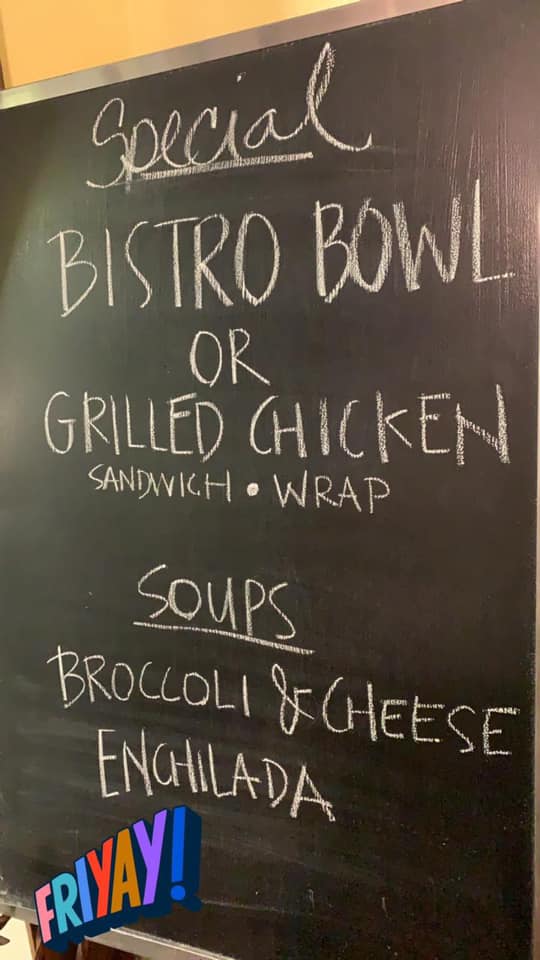 Special
BISTRO BOWL
OR
GRILLED CHICKEN
SANDWICH • WRAP
SOUPS
BROCCOLI & CHEESE
ENCHILADA
FRIYAY!